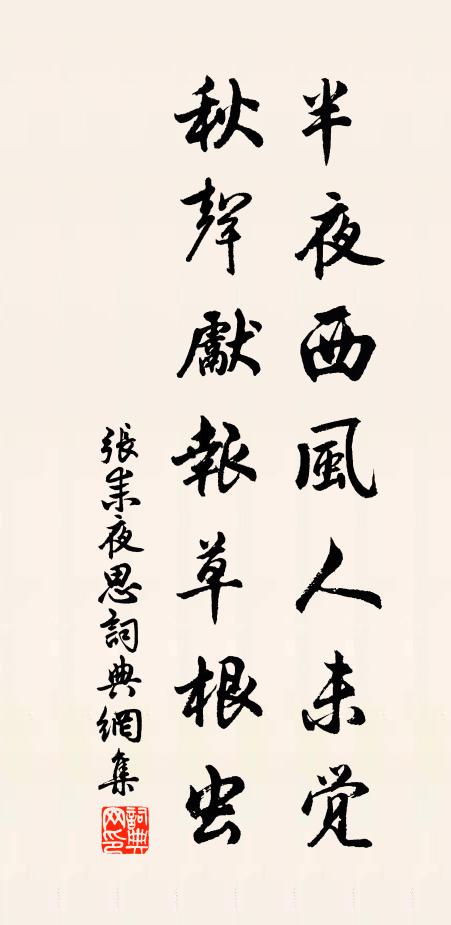 半夜西風人未觉
秋聲獻報草根虫
張耒夜思詞典網集
詞典网印